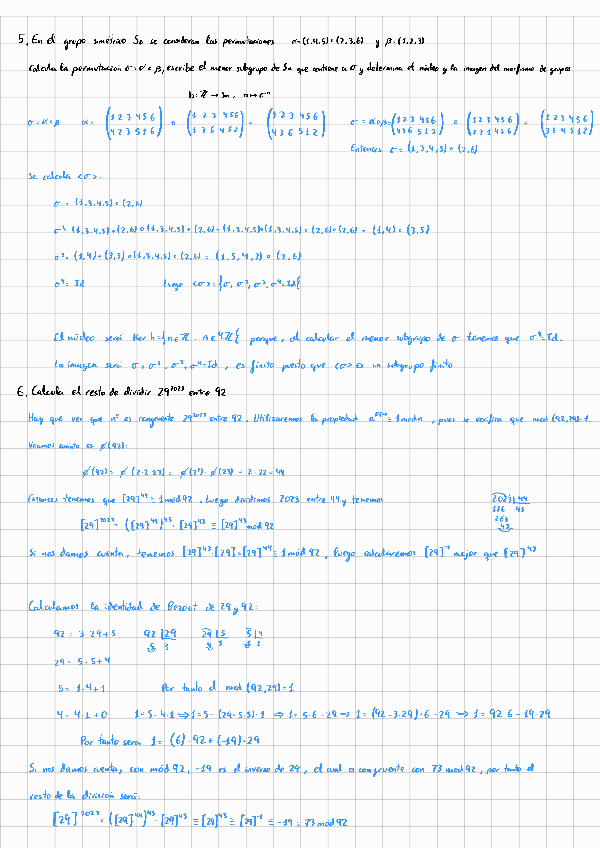 5. En el grupo simétrico S₆ se consideran las permutaciones α=(1,4,5)∘(2,3,6) y β=(1,2,3)
Calcula la permutación σ=α∘β, escribe el menor subgrupo de S₆ que contiene a σ y determina el núcleo y la imagen del morfismo de grupos
h: ℤ → S₆, n→σⁿ
σ=α∘β
Entonces σ=(1,3,4,5)∘(2,6)
Se calcula <σ>:
σ = (1,3,4,5)∘(2,6)
σ² (1,3,4,5)∘(2,6)∘(1,3,4,5)∘(2,6) = (1,3,4,5)∘(1,3,4,5)∘(2,6)∘(2,6) = (1,4)∘(3,5)
σ³ = (1,4)∘(3,5)∘(1,3,4,5)∘(2,6) = (1,5,4,3)∘(2,6)
σ⁴ = Id luego <σ> = {σ, σ², σ³, σ⁴=Id}
El núcleo será Ker h={n∈ℤ : n∈4ℤ} porque, al calcular el menor subgrupo de σ tenemos que σ⁴=Id.
La imagen será σ, σ², σ³, σ⁴=Id, es finito puesto que <σ> es un subgrupo finito
6. Calcula el resto de dividir 29²⁰²³ entre 92
Hay que ver que nº es congruente 29²⁰²³ entre 92. Utilizaremos la propiedad ≡1 mod n, pues se verifica que mcd(92,29)=1
Veamos cuánto es ϕ(92):
ϕ(92) = ϕ(2·2·23) = ϕ(2²)·ϕ(23) = 2·22 = 44
Entonces tenemos que [29]⁴⁴ ≡ 1 mod 92. Luego dividimos 2023 entre 44 y tenemos
2023 44
[29]²⁰²³ = ([29]⁴⁴)⁴⁵·[29]⁴³ ≡ [29]⁴³ mod 92
263
43
Si nos damos cuenta, tenemos [29]⁴³·[29]=[29]⁴⁴≡1 mod 92, luego calcularemos [29]⁻¹ mejor que [29]⁴³
Calculamos la identidad de Bezout de 29 y 92:
92 = 3·29+5 92 29 29 5 5 4
5 3 4 5 1 1
29 = 5·5+4
5 = 1·4+1 Por tanto el mcd(92,29)=1
4 = 4·1+0 1=5-4·1 ⇒ 1=5-(29-5·5)·1 ⇒ 1=5·6-29 ⇒ 1=(92-3·29)·6-29 ⇒ 1=92·6-19·29
Por tanto será 1=(6)·92+(-19)·29
Si nos damos cuenta, con mód 92, -19 es el inverso de 29, el cual es congruente con 73 mod 92, por tanto el
resto de la división será:
[29]²⁰²³ = ([29]⁴⁴)⁴⁵·[29]⁴³ ≡ [29]⁴³ ≡ [29]⁻¹ ≡ -19 ≡ 73 mod 92